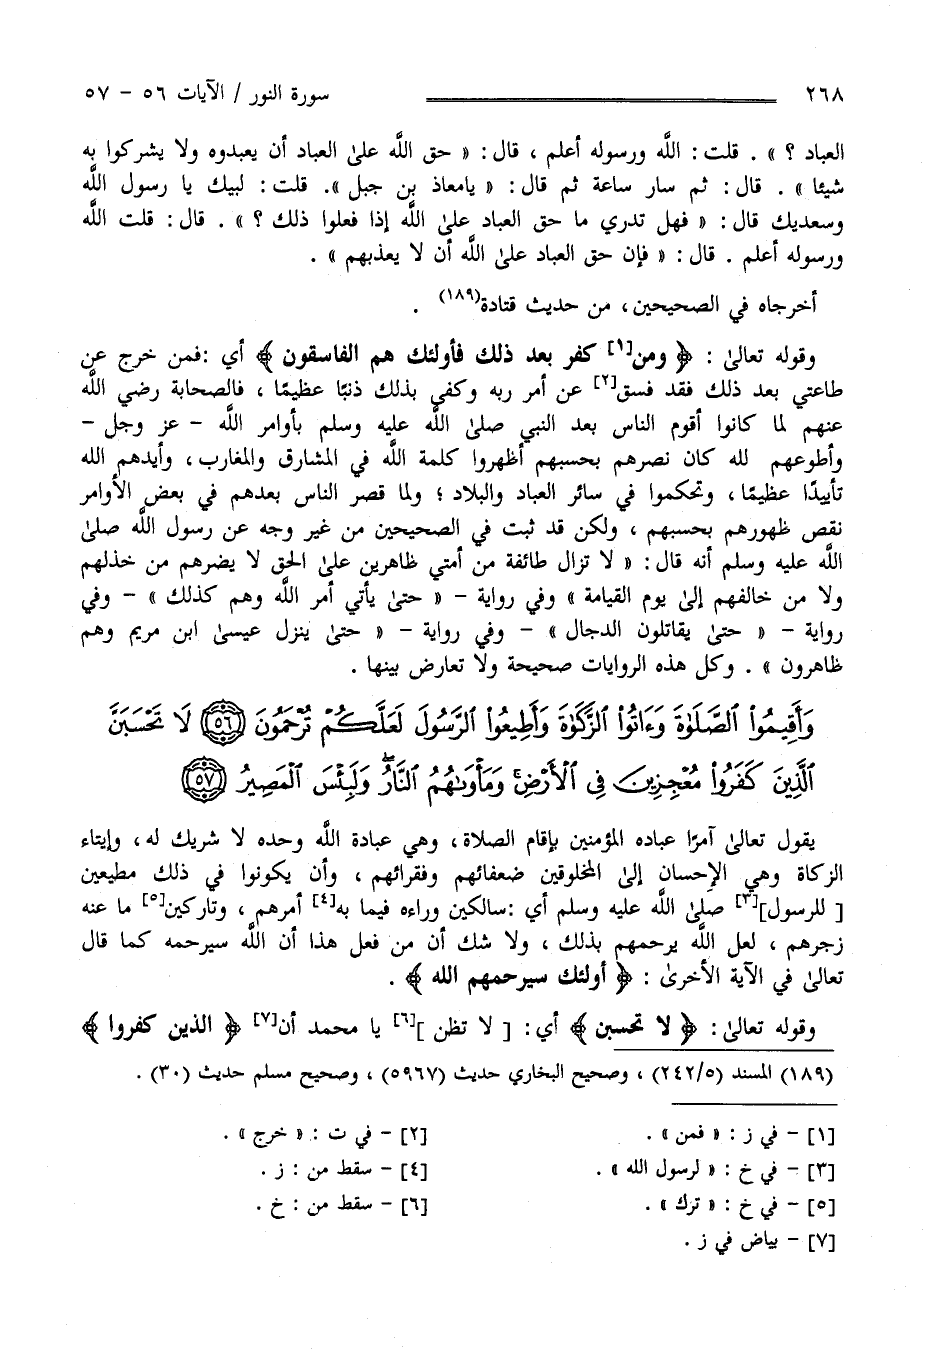 ٢٦٨ سورة النور / الآيات ٥٦ - ٥٧
العباد ؟ » . قلت : اللَّه ورسوله أعلم ، قال : « حق اللَّه علىٰ العباد أن يعبدوه ولا يشركوا به
شيئا » . قال : ثم سار ساعة ثم قال : « يامعاذ بن جبل ». قلت : لبيك يا رسول اللَّه
وسعديك قال : « فهل تدري ما حق العباد علىٰ اللَّه إذا فعلوا ذلك ؟ » . قال : قلت اللَّه
ورسوله أعلم . قال : « فإن حق العباد علىٰ اللَّه أن لا يعذبهم » .
أخرجاه في الصحيحين ، من حديث قتادة(١٨٩) .
وقوله تعالىٰ : ﴿ ومن[١] كفر بعد ذلك فأولئك هم الفاسقون ﴾ أي :فمن خرج عن
طاعتي بعد ذلك فقد فسق[٢] عن أمر ربه وكفى بذلك ذنبًا عظيمًا ، فالصحابة رضي اللَّه
عنهم لما كانوا أقوم الناس بعد النبي صلىٰ اللَّه عليه وسلم بأوامر اللَّه - عز وجل -
وأطوعهم لله كان نصرهم بحسبهم أظهروا كلمة اللَّه في المشارق والمغارب ، وأيدهم الله
تأييدًا عظيمًا ، وتحكموا في سائر العباد والبلاد ؛ ولما قصر الناس بعدهم في بعض الأوامر
نقص ظهورهم بحسبهم ، ولكن قد ثبت في الصحيحين من غير وجه عن رسول اللَّه صلىٰ
اللَّه عليه وسلم أنه قال : « لا تزال طائفة من أمتي ظاهرين علىٰ الحق لا يضرهم من خذلهم
ولا من خالفهم إلىٰ يوم القيامة » وفي رواية - « حتىٰ يأتي أمر اللَّه وهم كذلك » - وفي
رواية - « حتىٰ يقاتلون الدجال » - وفي رواية - « حتىٰ ينزل عيسىٰ ابن مريم وهم
ظاهرون » . وكل هذه الروايات صحيحة ولا تعارض بينها .
وَأَقِيمُوا۟ ٱلصَّلَوٰةَ وَءَاتُوا۟ ٱلزَّكَوٰةَ وَأَطِيعُوا۟ ٱلرَّسُولَ لَعَلَّكُمْ تُرْحَمُونَ ۝٥٦ لَا تَحْسَبَنَّ
ٱلَّذِينَ كَفَرُوا۟ مُعْجِزِينَ فِى ٱلْأَرْضِ ۚ وَمَأْوَىٰهُمُ ٱلنَّارُ ۖ وَلَبِئْسَ ٱلْمَصِيرُ ۝٥٧
يقول تعالىٰ آمرًا عباده المؤمنين بإقام الصلاة ، وهي عبادة اللَّه وحده لا شريك له ، وإيتاء
الزكاة وهي الإحسان إلىٰ المخلوقين ضعفائهم وفقرائهم ، وأن يكونوا في ذلك مطيعين
[ للرسول][٣] صلىٰ اللَّه عليه وسلم أي :سالكين وراءه فيما به[٤] أمرهم ، وتاركين[٥] ما عنه
زجرهم ، لعل اللَّه يرحمهم بذلك ، ولا شك أن من فعل هذا أن اللَّه سيرحمه كما قال
تعالىٰ في الآية الأخرىٰ : ﴿ أولئك سيرحمهم الله ﴾ .
وقوله تعالىٰ : ﴿ لا تحسبن ﴾ أي : [ لا تظن ][٦] يا محمد أن[٧] ﴿ الذين كفروا ﴾
(١٨٩) المسند (٢٤٢/٥) ، وصحيح البخاري حديث (٥٩٦٧) ، وصحيح مسلم حديث (٣٠) .
[١] - في ز : « فمن » . [٢] - في ت : « خرج » .
[٣] - في خ : « لرسول الله » . [٤] - سقط من : ز .
[٥] - في خ : « ترك » . [٦] - سقط من : خ .
[٧] - بياض في ز .